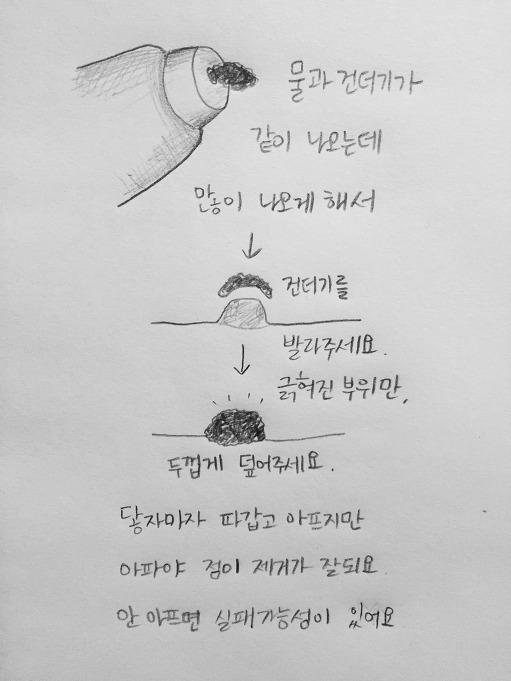 물과 건더기가
같이 나오는데
많이 나오게 해서
건더기를
발라주세요.
긁혀진 부위만,
두껍게 덮어주세요.
닿자마자 따갑고 아프지만
아파야 점이 제거가 잘되요
안아프면 실패가능성이 있어요